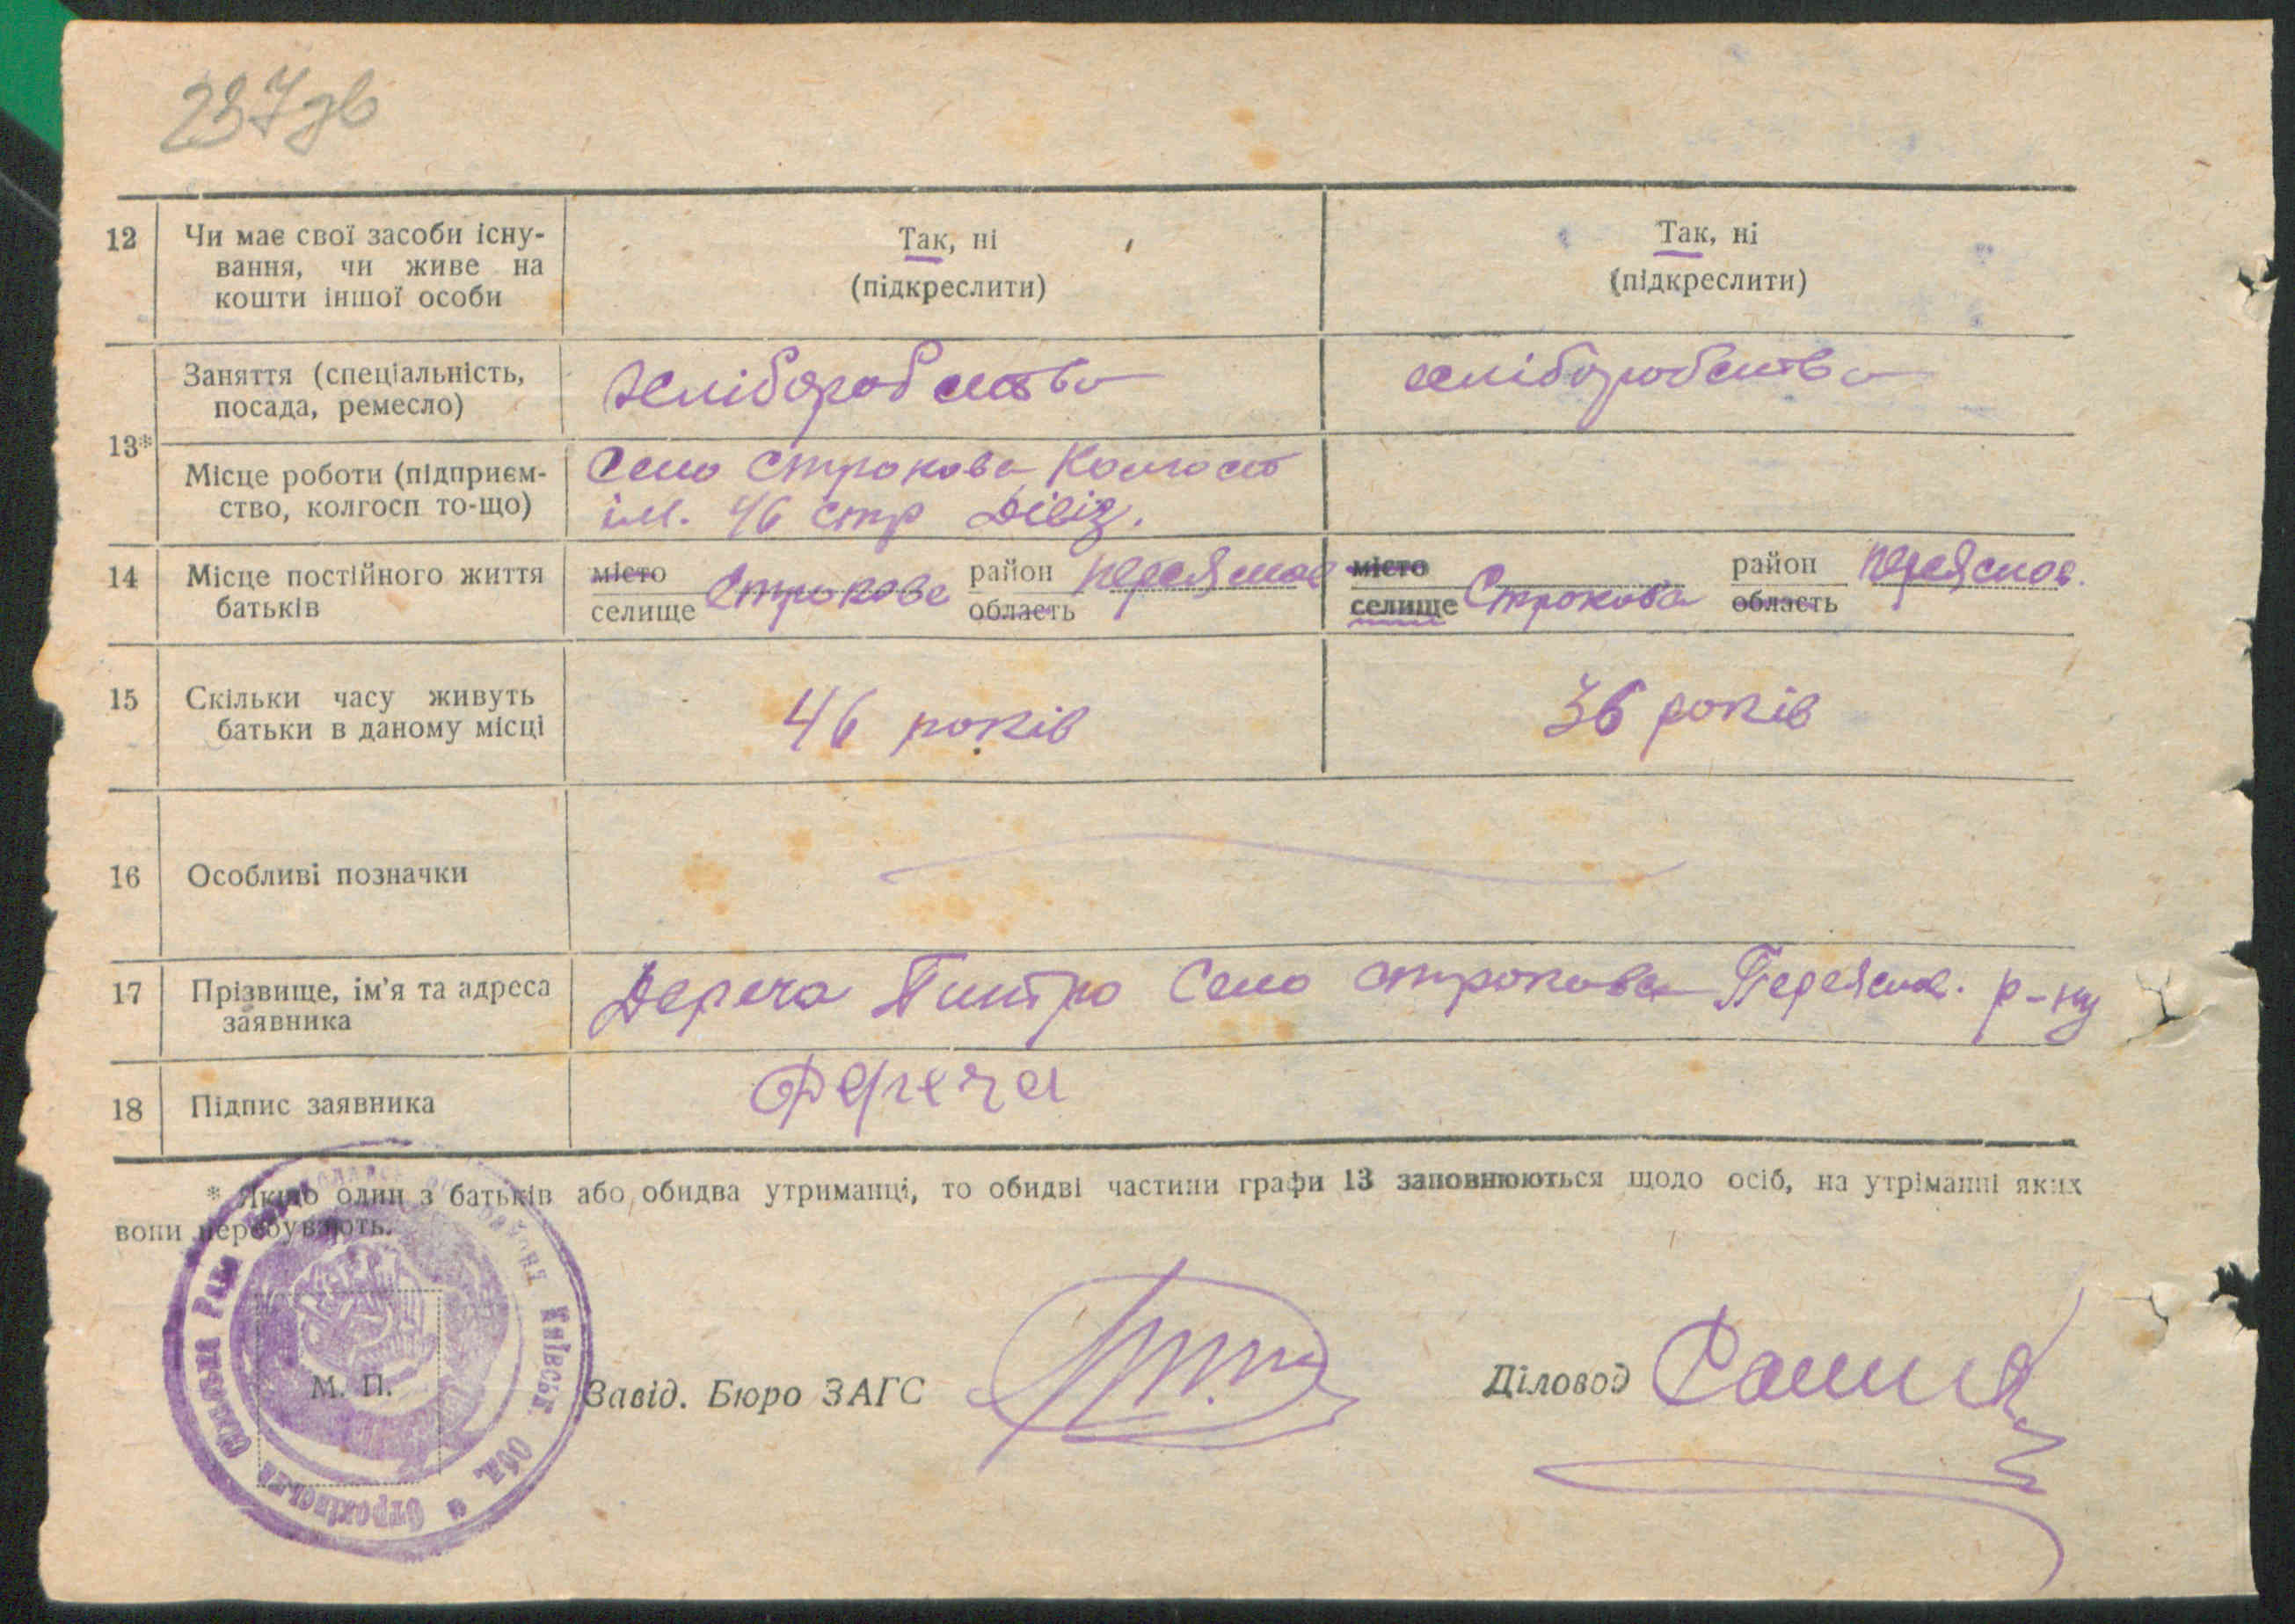 237зв
12 Чи має свої засоби існу- Так, ні Так, ні
вання, чи живе на (підкреслити) (підкреслити)
кошти іншої особи
Заняття (спеціальність, Хліборобство хліборобство
посада, ремесло)
13*
Місце роботи (підприєм- Село Строкова Колгосп
ство, колгосп то-що) ім. 46 стр Дівіз.
14 Місце постійного життя місто Строкове район Переяслов місто Строкова район Переяслов.
батьків селище область селище область
15 Скільки часу живуть 46 років 36 років
батьки в даному місці
16 Особливі позначки
17 Прізвище, ім'я та адреса Дереча Питро Село строкова Переяслов. р-ну
заявника
18 Підпис заявника Дереча
* Якщо один з батьків або обидва утриманці, то обидві частини графи 13 заповнюються щодо осіб, на утріманні яких
вони перебувають.
Строківська Сільська Рада району Київськ. обл.
М. П.
Завід. Бюро ЗАГС
Діловод